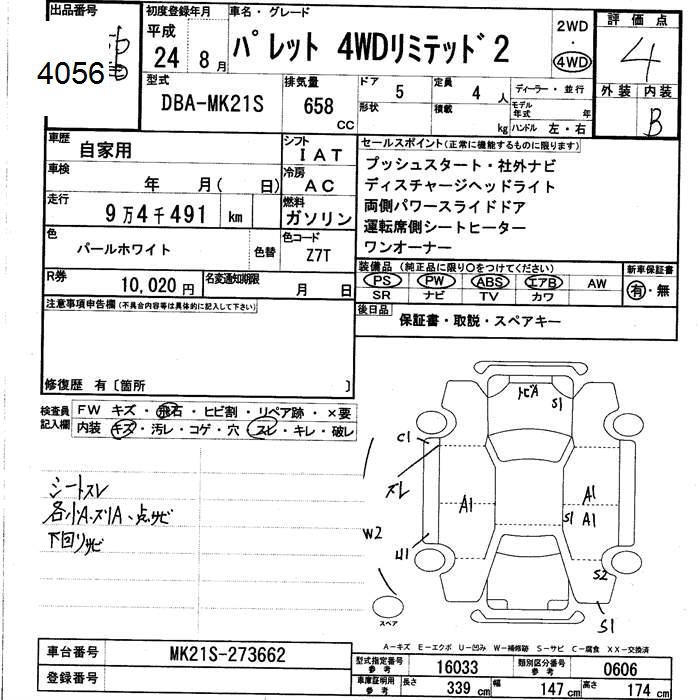 出品番号
4056
初度登録年月
平成
24 8月
車名・グレード
パレット 4WDリミテッド2
2WD
・
4WD
評価点
4
外装 内装
B
型式
DBA-MK21S
排気量
658
cc
ドア
5
形状
定員
4 人
積載
kg
ディーラー・並行
モデル
年式 年
ハンドル 左・右
車歴
自家用
シフト
IAT
車検
年 月( 日)
冷房
AC
走行
9万4千491 km
燃料
ガソリン
色
パールホワイト
色替
色コード
Z7T
R券
10,020円
名変通知期限
月 日
セールスポイント(正常に機能するものに限ります)
プッシュスタート・社外ナビ
ディスチャージヘッドライト
両側パワースライドドア
運転席側シートヒーター
ワンオーナー
装備品(純正品に限り○をつけてください)
PS PW ABS エアB AW
SR ナビ TV カワ
新車保証書
有・無
後日品
保証書・取説・スペアキー
注意事項申告欄(不具合内容等は具体的に記入して下さい)
修復歴 有〔箇所 〕
検査員
記入欄
FW キズ・飛石・ヒビ割・リペア跡・×要
内装 キズ・汚レ・コゲ・穴・スレ・キレ・破レ
シートスレ
各小A.スリA、点サビ
下回りサビ
トビA
S1
C1
スレ
A1
A1
S1
A1
W2
U1
S2
S1
スペア
A-キズ E-エクボ U-凹み W-補修跡 S-サビ C-腐食 XX-交換済
車台番号
MK21S-273662
登録番号
型式指定番号
参考
16033
類別区分番号
参考
0606
車庫証明用
参考
長さ
339 cm
幅
147 cm
高さ
174 cm